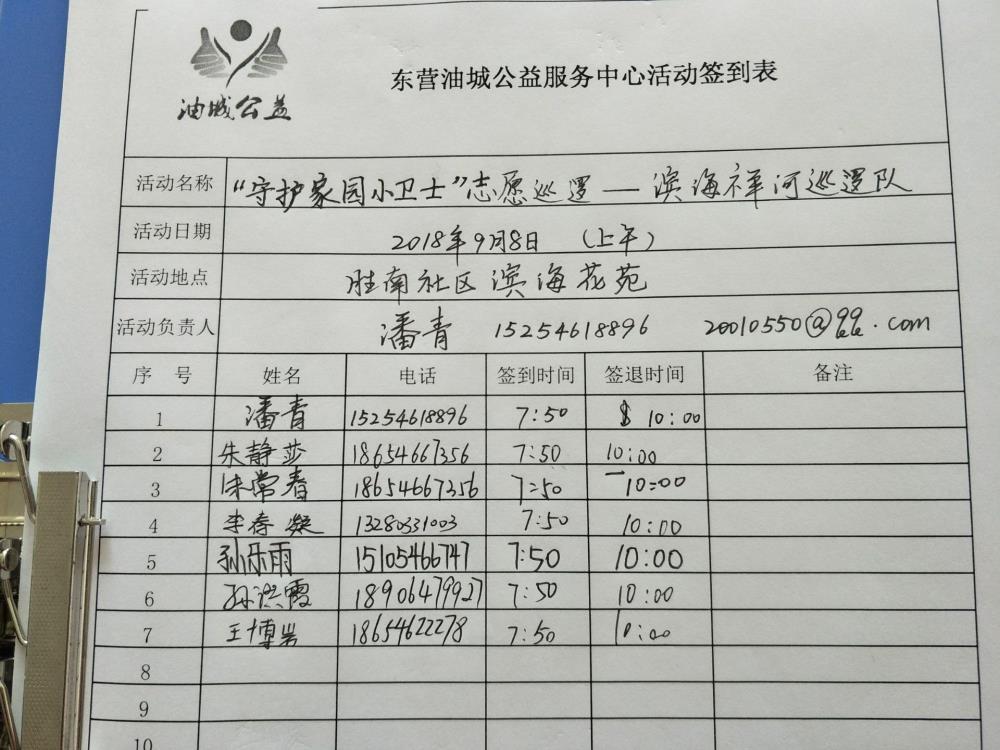 油城公益
东营油城公益服务中心活动签到表
活动名称 “守护家园小卫士”志愿巡逻 — 滨海祥河巡逻队
活动日期 2018年9月8日 (上午)
活动地点 胜南社区 滨海花苑
活动负责人 潘青 15254618896 20010550@qq.com
序号 姓名 电话 签到时间 签退时间 备注
1 潘青 15254618896 7:50 10:00
2 朱静莎 18654667356 7:50 10:00
3 朱常春 18654667356 7:50 10:00
4 李春凝 13280331003 7:50 10:00
5 孙乐雨 15105466747 7:50 10:00
6 孙洪霞 18906479927 7:50 10:00
7 王博岩 18654622278 7:50 10:00
8
9
10